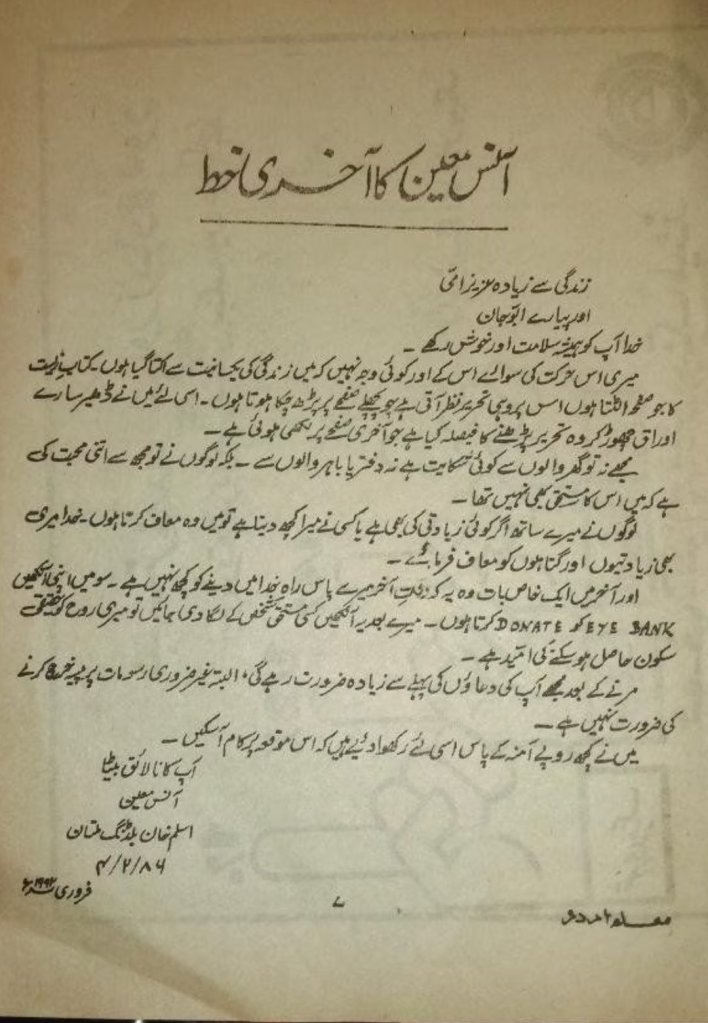 آنس معین کا آخری خط
زندگی سے زیادہ عزیز امی
اور پیارے ابو جان
خدا آپ کو ہمیشہ سلامت اور خوش رکھے ۔
میری اس حرکت کی سوائے اس کے اور کوئی وجہ نہیں کہ میں زندگی کی یکسانیت سے اکتا گیا ہوں ۔ کتابِ زیست
کا جو صفحہ الٹتا ہوں اس پر وہی تحریر نظر آتی ہے جو پچھلے صفحے پر پڑھ چکا ہوتا ہوں ۔ اسی لئے میں نے ڈھیر سارے
اوراق چھوڑ کر وہ تحریر پڑھنے کا فیصلہ کیا ہے جو آخری صفحے پر لکھی ہوئی ہے ۔
مجھے نہ تو گھر والوں سے کوئی شکایت ہے نہ دفتر یا باہر والوں سے ۔ بلکہ لوگوں نے تو مجھ سے اتنی محبت کی
ہے کہ میں اس کا مستحق بھی نہیں تھا ۔
لوگوں نے میرے ساتھ اگر کوئی زیادتی کی بھی ہے یا کسی نے میرا کچھ دینا ہے تو میں وہ معاف کرتا ہوں ۔ خدا میری
بھی زیادتیوں اور گناہوں کو معاف فرمائے ۔
اور آخر میں ایک خاص بات وہ یہ کہ وقتِ آخر میرے پاس راہِ خدا میں دینے کو کچھ نہیں ہے ۔ سو میں اپنی آنکھیں
EYE BANK کو DONATE کرتا ہوں ۔ میرے بعد یہ آنکھیں کسی مستحق شخص کے لگا دی جائیں تو میری روح کو حقیقی
سکون حاصل ہو سکنے کی امید ہے ۔
مرنے کے بعد مجھے آپ کی دعاؤں کی پہلے سے زیادہ ضرورت رہے گی ، البتہ غیر ضروری رسومات پر پیسہ خرچ کرنے
کی ضرورت نہیں ہے ۔
میں نے کچھ روپے آمنہ کے پاس اسی لئے رکھوا دیئے ہیں کہ اس موقعہ پر کام آ سکیں ۔
آپ کا نالائق بیٹا
آنس معین
اسلم خان بلڈنگ ملتان
۴/۲/۸۶
فروری ۱۹۹۲ء
۷